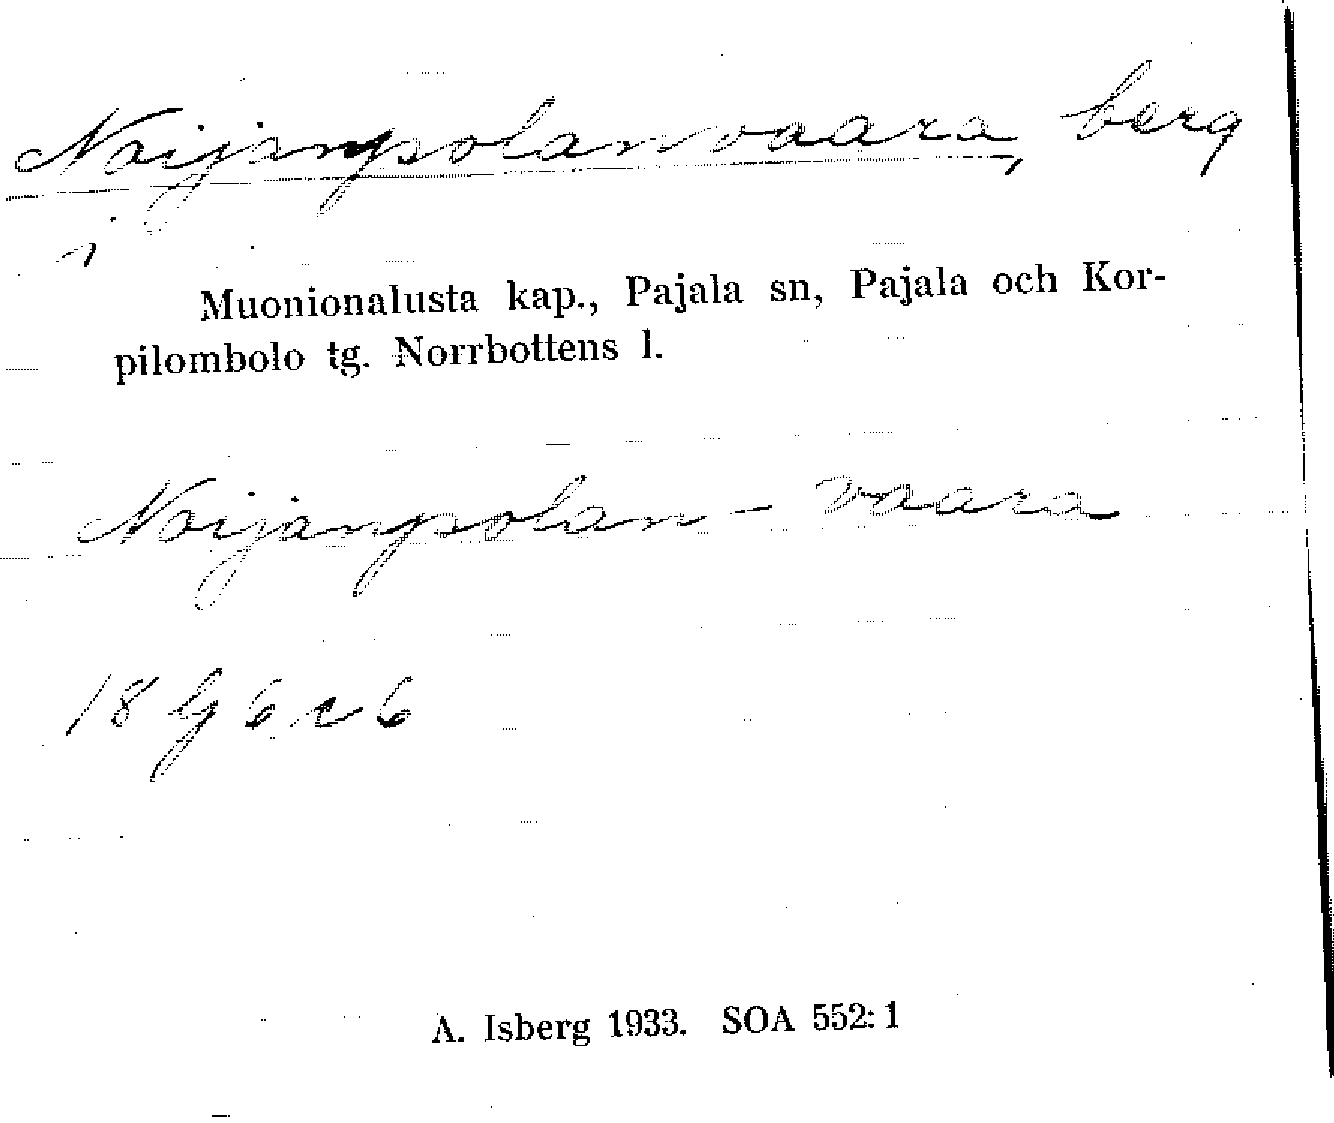 Noijanpolanvaara, berg
i
Muonionalusta kap., Pajala sn, Pajala och Kor-
pilombolo tg. Norrbottens l.
Noijanpolan - Vaara
18 G 6 c 6
A. Isberg 1933. SOA 552:1